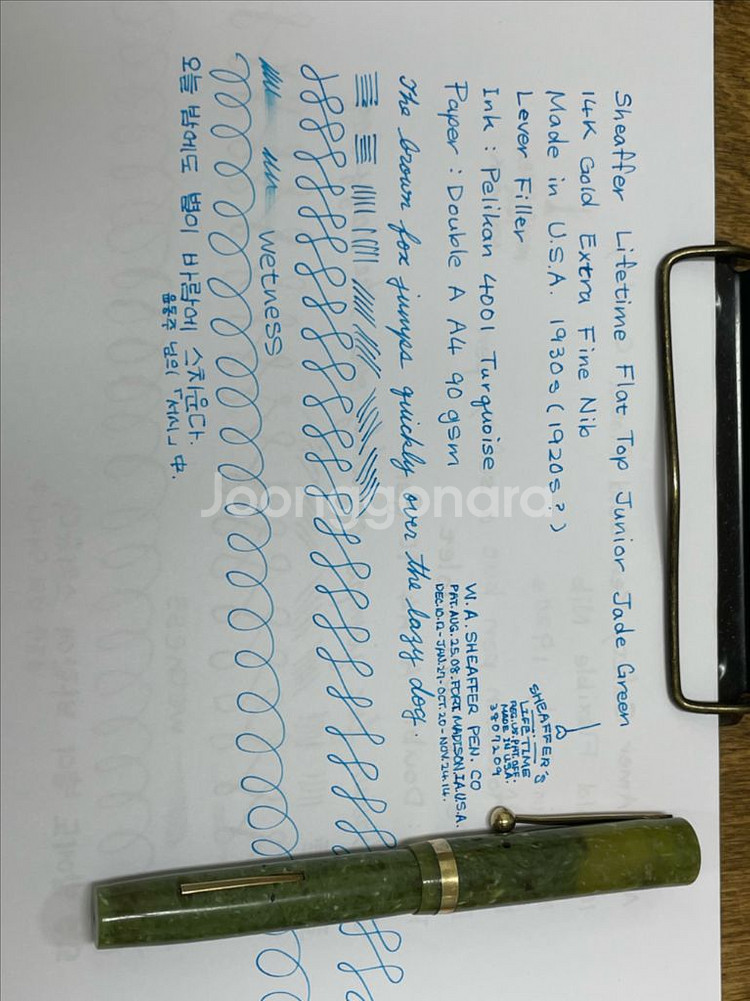 Sheaffer Lifetime Flat Top Junior Jade Green
14K Gold Extra Fine Nib
Made in U.S.A. 1930s (1920s?)
Lever Filler
Ink : Pelikan 4001 Turquoise
Paper : Double A A4 90gsm
SHEAFFER'S
LIFETIME
REG. U.S. PAT. OFF.
MADE IN U.S.A.
3807209
W. A. SHEAFFER PEN. CO
PAT. AUG. 25. 08. FORT MADISON, IA. U.S.A.
DEC. 10. 12 - JAN. 27 - OCT. 20 - NOV. 24. 14.
The brown fox jumps quickly over the lazy dog.
wetness
오늘 밤에도 별이 바람에 스치운다.
윤동주 님의 「서시」 中.
Joonggonara